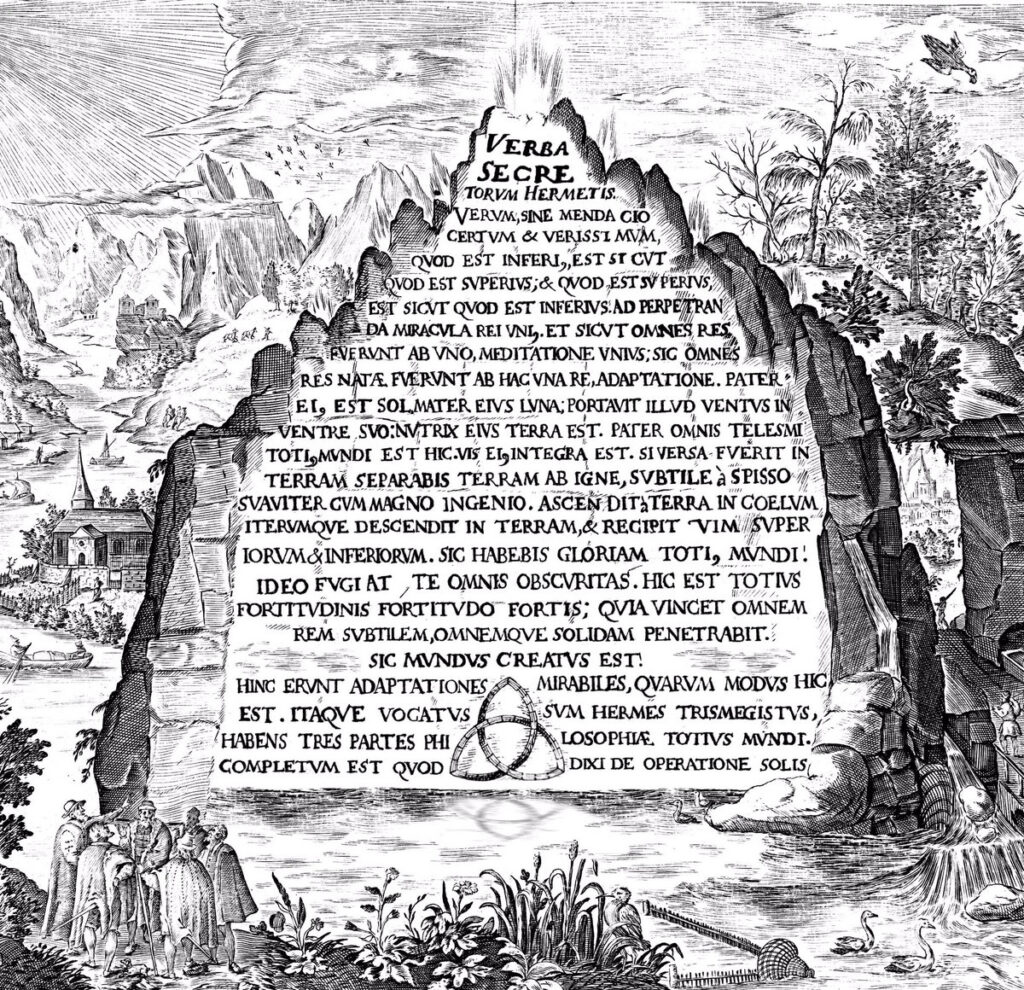 VERBA
SECRE
TORVM HERMETIS.
VERVM, SINE MENDA CIO
CERTVM & VERISSI MVM,
QVOD EST INFERI,, EST SI CVT
QVOD EST SVPERIVS; & QVOD EST SV PERIVS,
EST SICVT QVOD EST INFERIVS. AD PERPETRAN
DA MIRACVLA REI VNI,, ET SICVT OMNES RES
FVERVNT AB VNO, MEDITATIONE VNIVS; SIC OMNES
RES NATÆ FVERVNT AB HAC VNA RE, ADAPTATIONE. PATER
EI, EST SOL, MATER EIVS LVNA; PORTAVIT ILLVD VENTVS IN
VENTRE SVO: NVTRIX EIVS TERRA EST. PATER OMNIS TELESMI
TOTI, MVNDI EST HIC. VIS EI, INTEGRA EST. SI VERSA FVERIT IN
TERRAM SEPARABIS TERRAM AB IGNE, SVBTILE à SPISSO
SVAVITER CVM MAGNO INGENIO. ASCENDIT à TERRA IN COELVM
ITERVMQVE DESCENDIT IN TERRAM, & RECIPIT VIM SVPER
IORVM & INFERIORVM. SIC HABEBIS GLORIAM TOTI, MVNDI!
IDEO FVGIAT TE OMNIS OBSCVRITAS. HIC EST TOTIVS
FORTITVDINIS FORTITVDO FORTIS; QVIA VINCET OMNEM
REM SVBTILEM, OMNEMQVE SOLIDAM PENETRABIT.
SIC MVNDVS CREATVS EST!
HINC ERVNT ADAPTATIONES MIRABILES, QVARVM MODVS HIC
EST. ITAQVE VOCATVS SVM HERMES TRISMEGISTVS,
HABENS TRES PARTES PHI LOSOPHIÆ TOTIVS MVNDI.
COMPLETVM EST QVOD DIXI DE OPERATIONE SOLIS